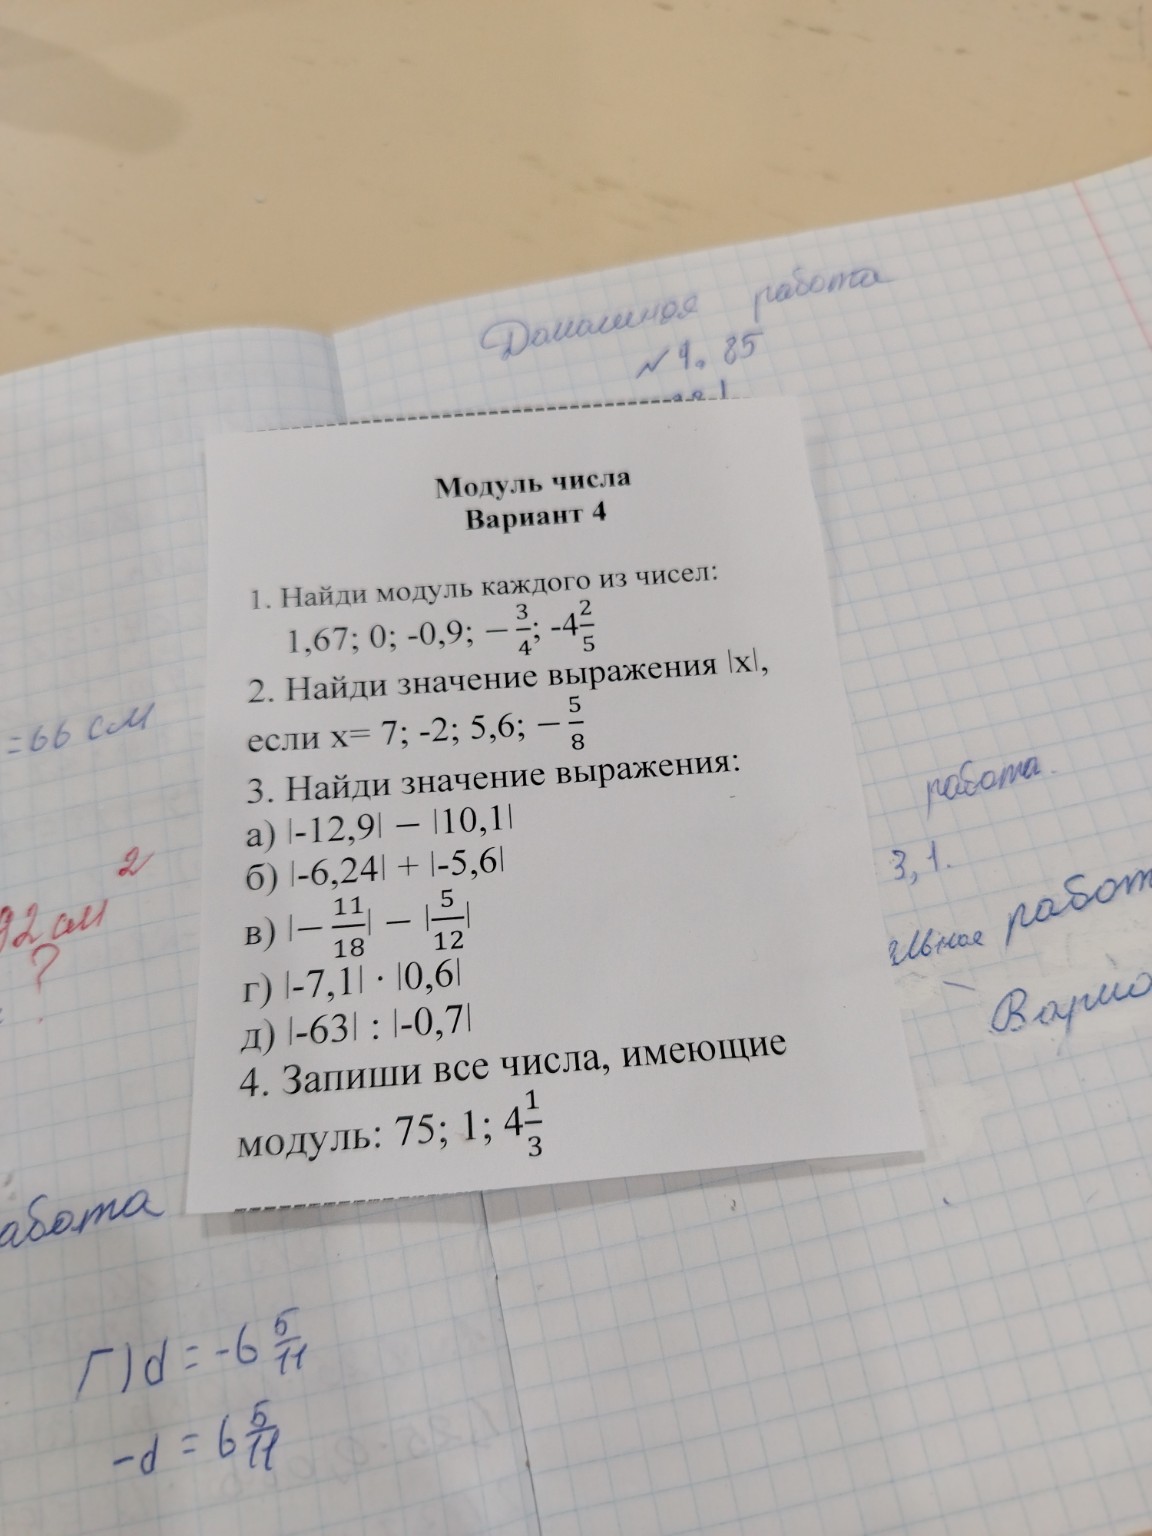 Домашняя работа
№ 4. 85
Модуль числа
Вариант 4
1. Найди модуль каждого из чисел:
1,67; 0; -0,9; −3/4; -4 2/5
2. Найди значение выражения |x|,
если x= 7; -2; 5,6; −5/8
3. Найди значение выражения:
а) |-12,9| − |10,1|
б) |-6,24| + |-5,6|
в) |−11/18| − |5/12|
г) |-7,1| · |0,6|
д) |-63| : |-0,7|
4. Запиши все числа, имеющие
модуль: 75; 1; 4 1/3
=66 см
92 см²
?
работа.
3,1.
льная работ
Вариа
абота
Г) d = -6 5/11
-d = 6 5/11